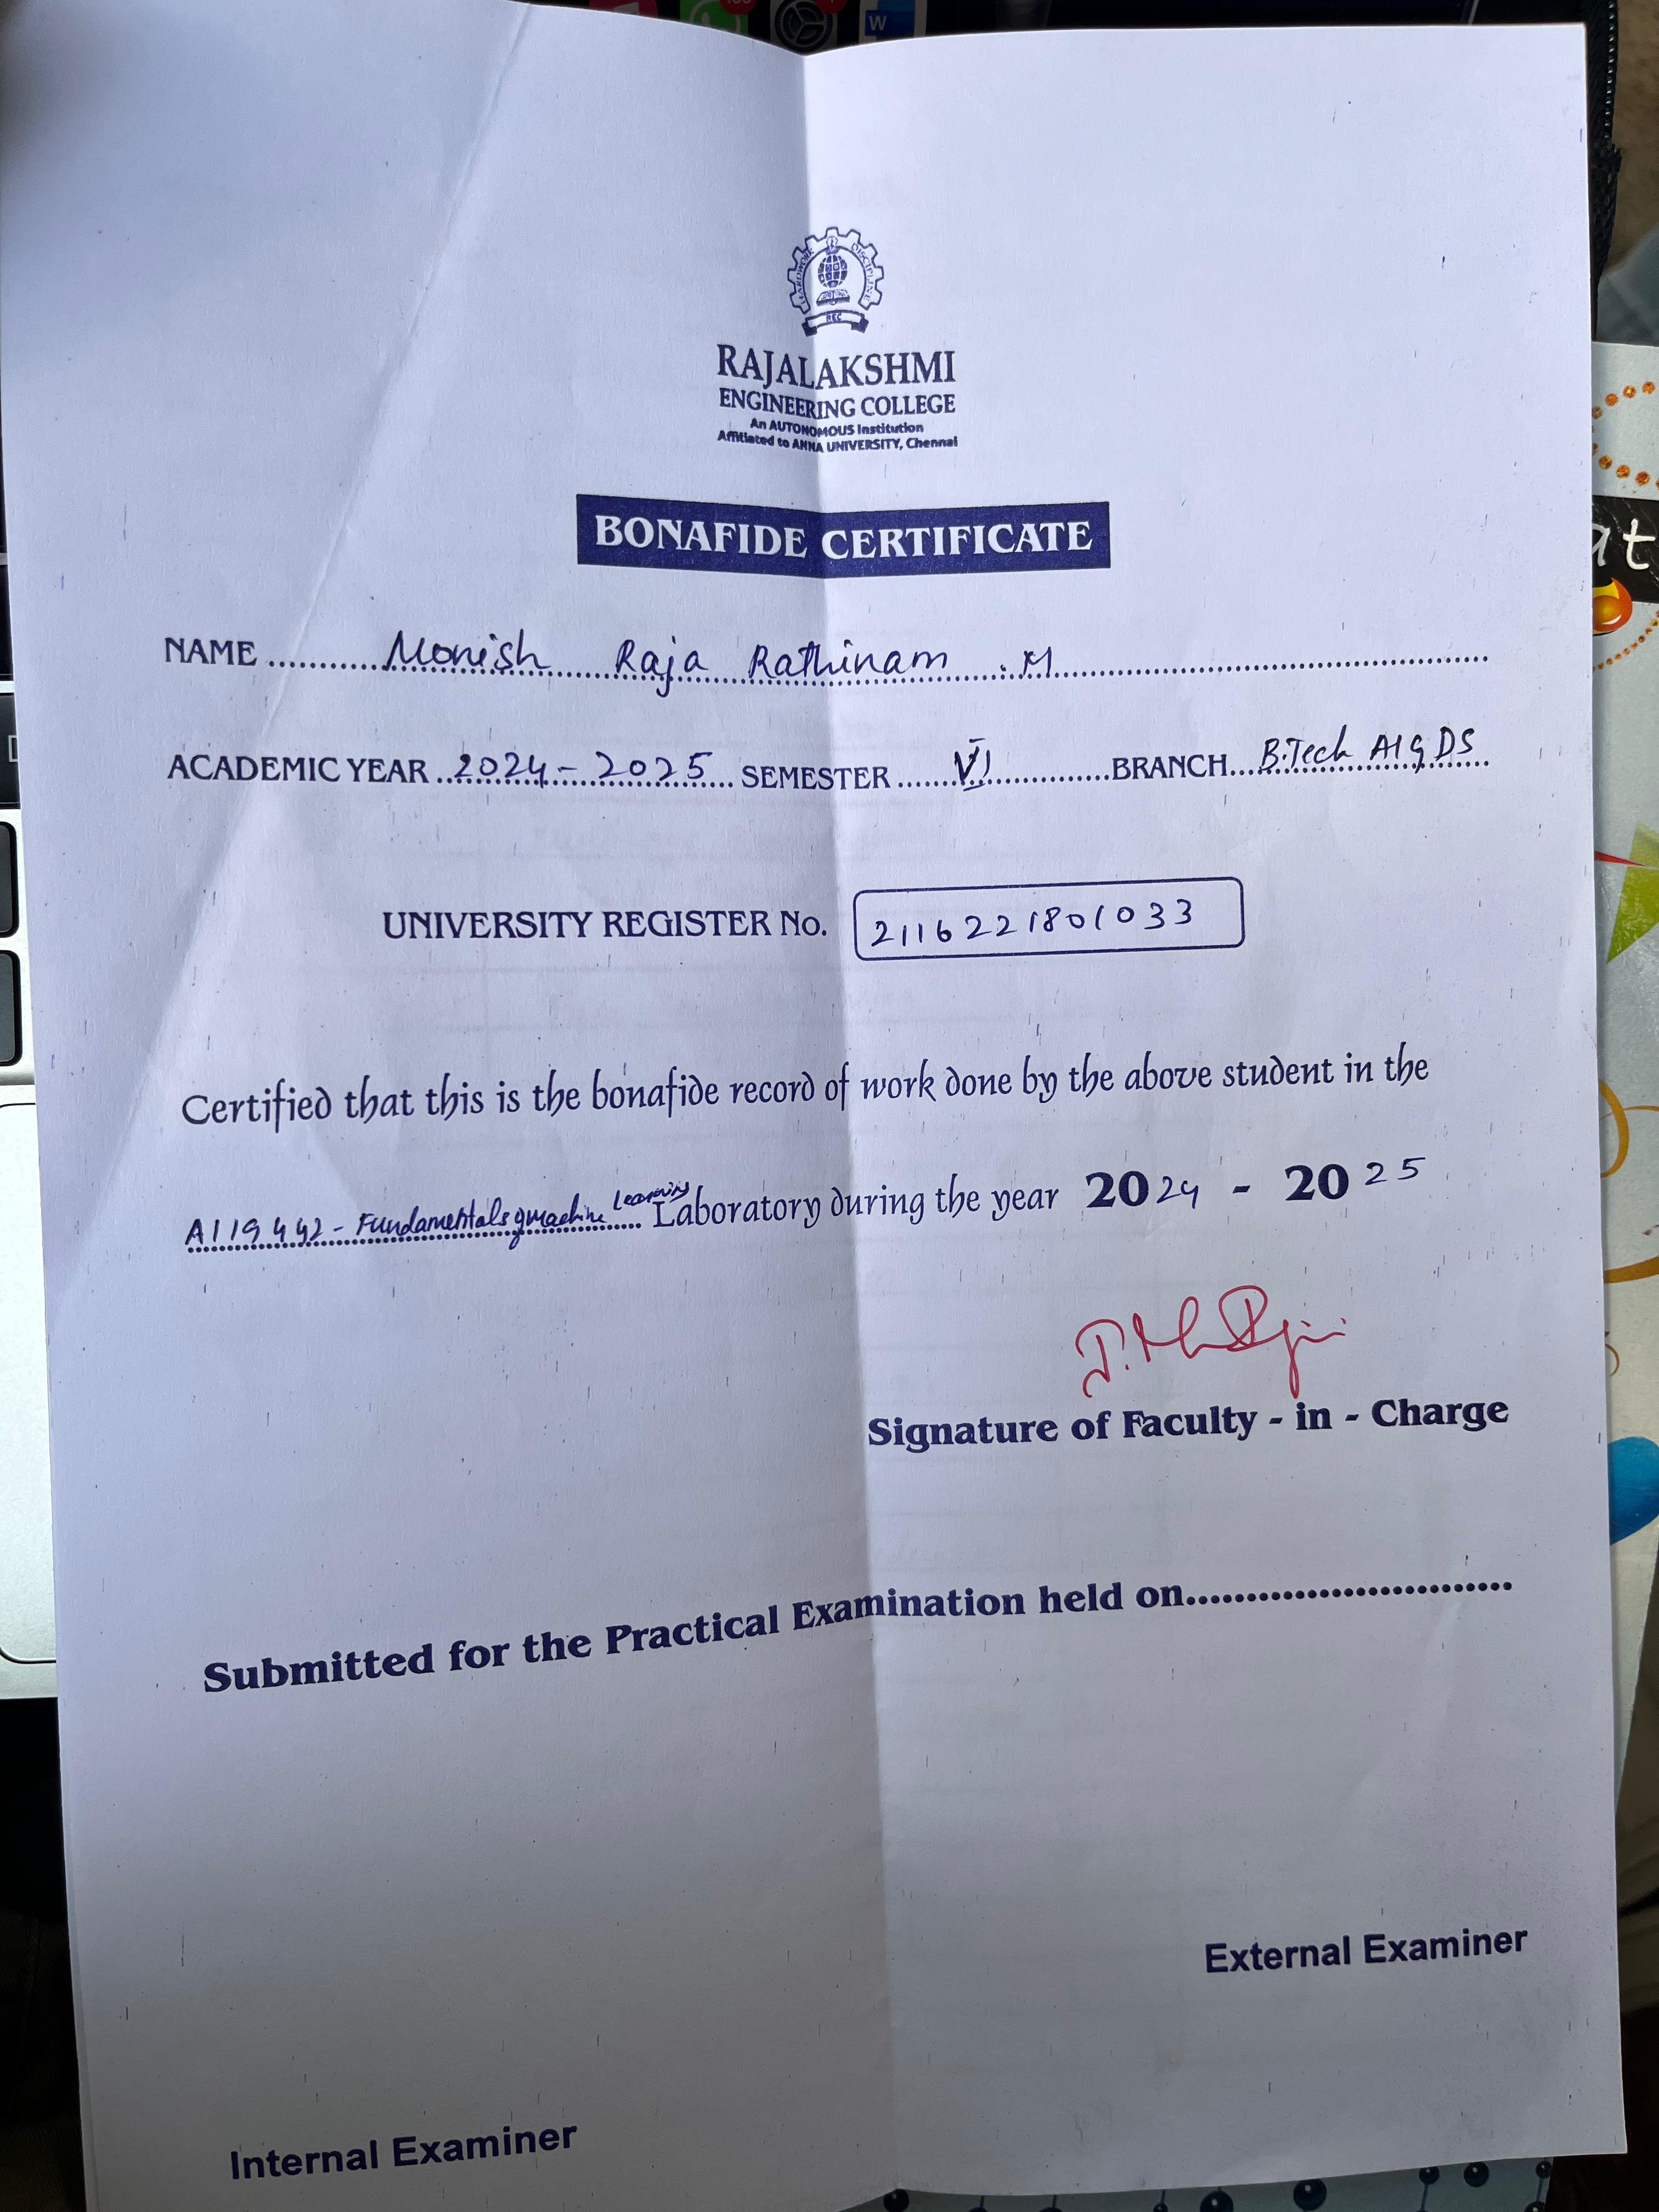 W
HARDWORK DISCIPLINE
REC
RAJALAKSHMI
ENGINEERING COLLEGE
An AUTONOMOUS Institution
Affiliated to ANNA UNIVERSITY, Chennai
BONAFIDE CERTIFICATE
NAME Monish Raja Rathinam .M
ACADEMIC YEAR 2024 - 2025 SEMESTER VI BRANCH B.Tech AI & DS
UNIVERSITY REGISTER No. 2116221801033
Certified that this is the bonafide record of work done by the above student in the
AI19442 - Fundamentals of machine Learning Laboratory during the year 2024 - 2025
Signature of Faculty - in - Charge
Submitted for the Practical Examination held on
External Examiner
Internal Examiner